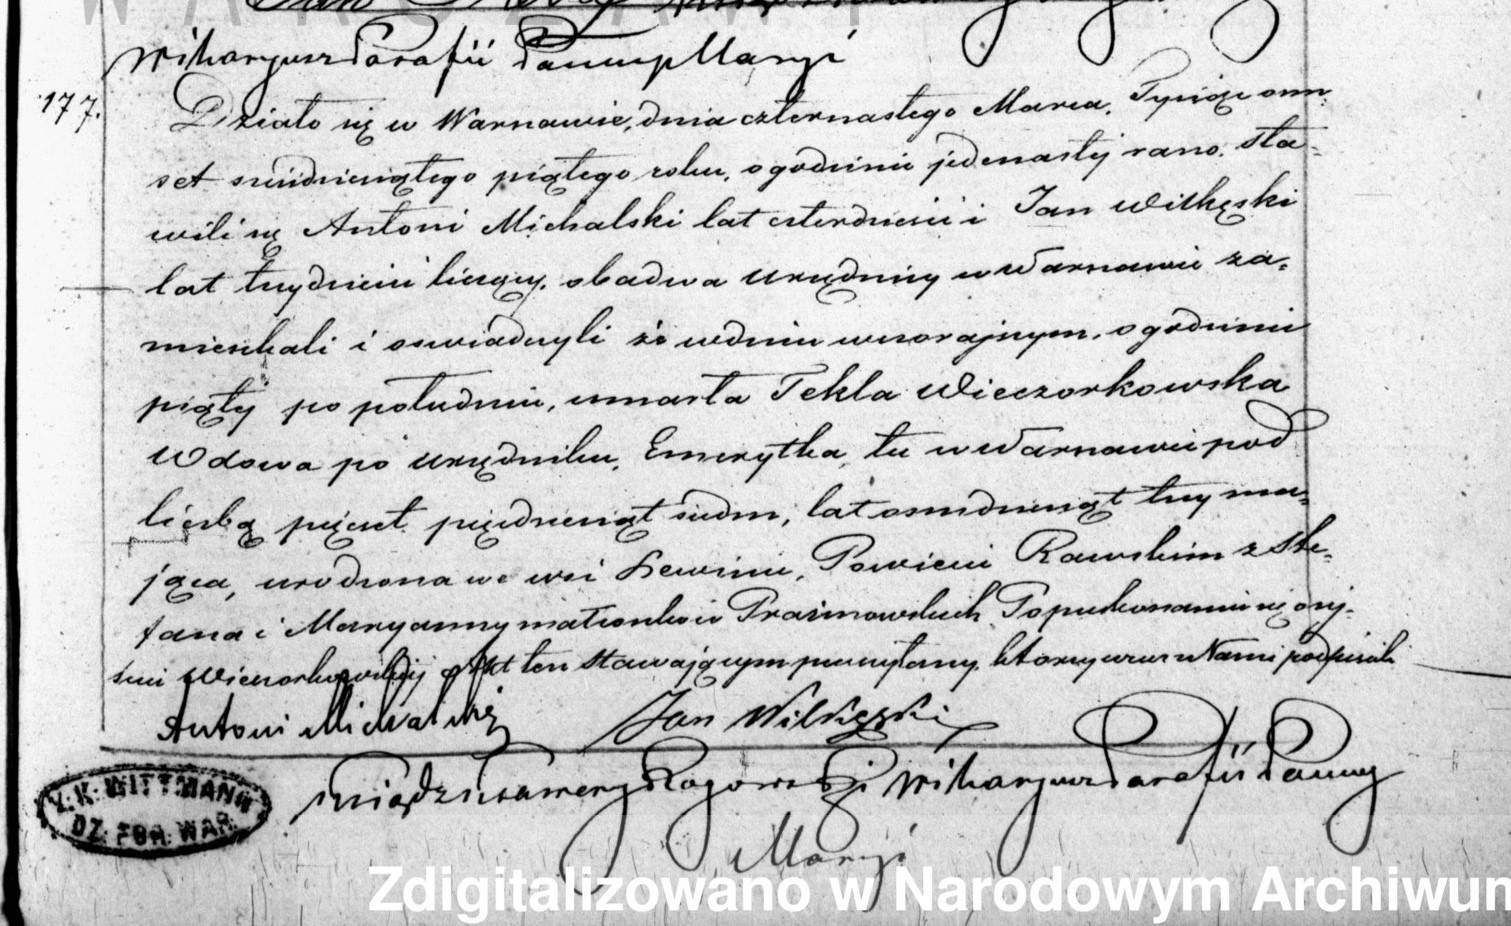 WARSZAWI
Wikaryusz Parafii Panny Maryi
177.
Działo się w Warszawie, dnia czternastego Marca, Tysiąc osm=
set siedmdziesiątego piątego roku, o godzinie jedenastej rano. Sta=
wili się Antoni Michalski lat czterdzieści i Jan Wilkęski
lat trzydzieści liczący, obadwa urzędnicy w Warszawie za=
mieszkali i oświadczyli że w dniu wczorajszym, o godzinie
piątej po południu, umarła Tekla Wieczorkowska
Wdowa po urzędniku, Emerytka, tu w Warszawie pod
liczbą pięćset pięćdziesiąt siedm, lat osmdziesiąt trzy ma=
jąca, urodzona we wsi Lewinie, Powiecie Rawskim z Ste=
fana i Maryanny małżonków Prażmowskich. Po przekonaniu się o zej=
ściu Wieczorkowskiej Akt ten stawającym przeczytany, którzy wraz z Nami podpisali
Antoni Michalski Jan Wilkęzki
Ksiądz Ksawery Rogowski Wikaryusz Parafii Panny
Maryi
Z.K. WITTMANN
DZ. FOR. WAR.
Zdigitalizowano w Narodowym Archiwum